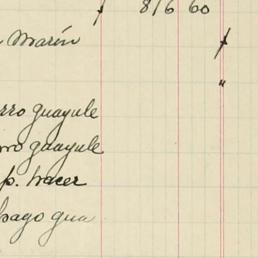 816 60
Marín
"
rro guayule
rro guayule
p. hacer
pago gua